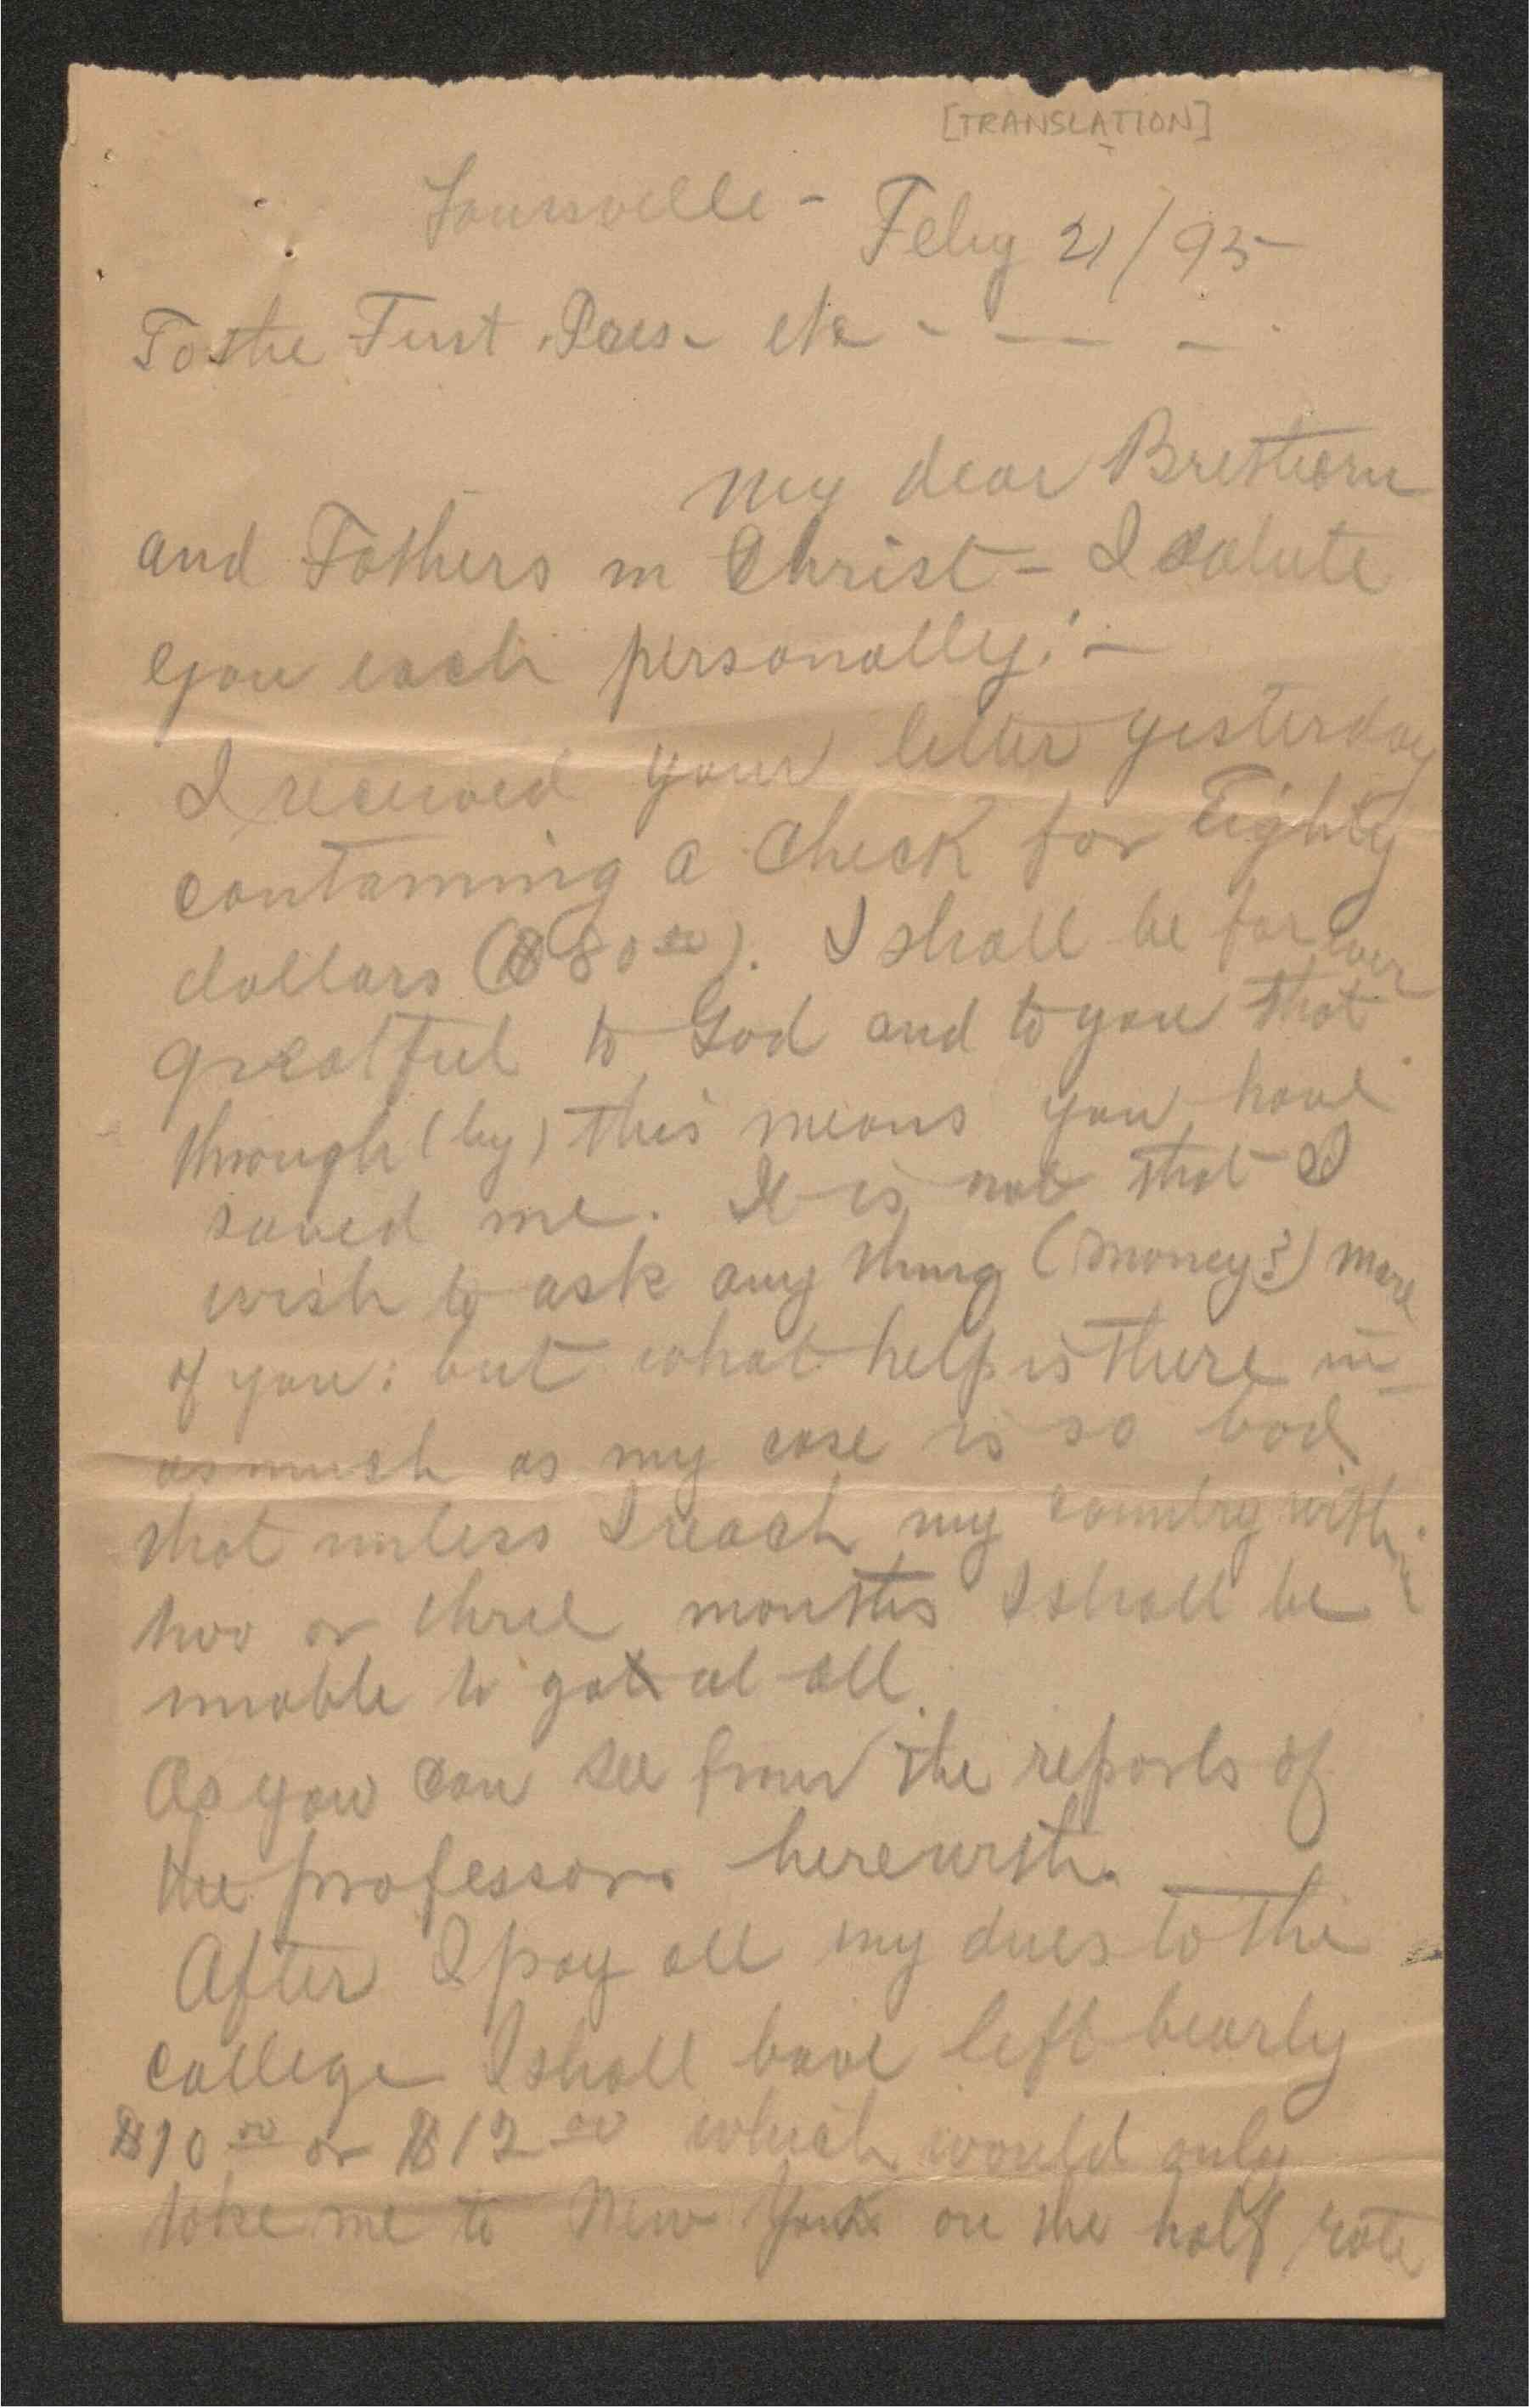 [TRANSLATION]
Louisville - Feby 21/95
To the First Pres. etc - - — -
My dear Brethern
and Fathers in Christ - I salute
you each personally! -
I received your letter yesterday
containing a check for Eighty
dollars ($80 00). I shall be forever
greatful to God and to you that
through (by) this means you have
saved me. It is not that I
wish to ask any thing (money?) more
of you: but what help is there in-
asmuch as my case is so bad
that unless I reach my country within
two or three months I shall be
unable to go at all.
As you can see from the reports of
the professors herewith. —
After I pay all my dues to the
college I shall have left bearly
$10 00 or $12 00 which would only
take me to New York on the half rate